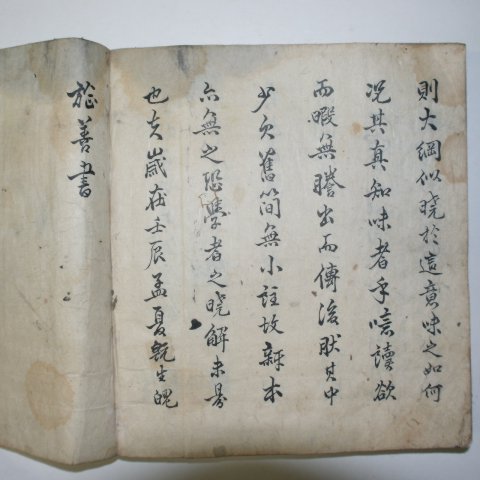 則大綱似曉於這意味之如何
况其真知味者乎噫讀欲
而暇無謄出而傳後肰其中
少欠舊簡無小註故辭本
亦無之恐學者之曉解未易
也矣歲在壬辰孟夏旣生魄
於善書